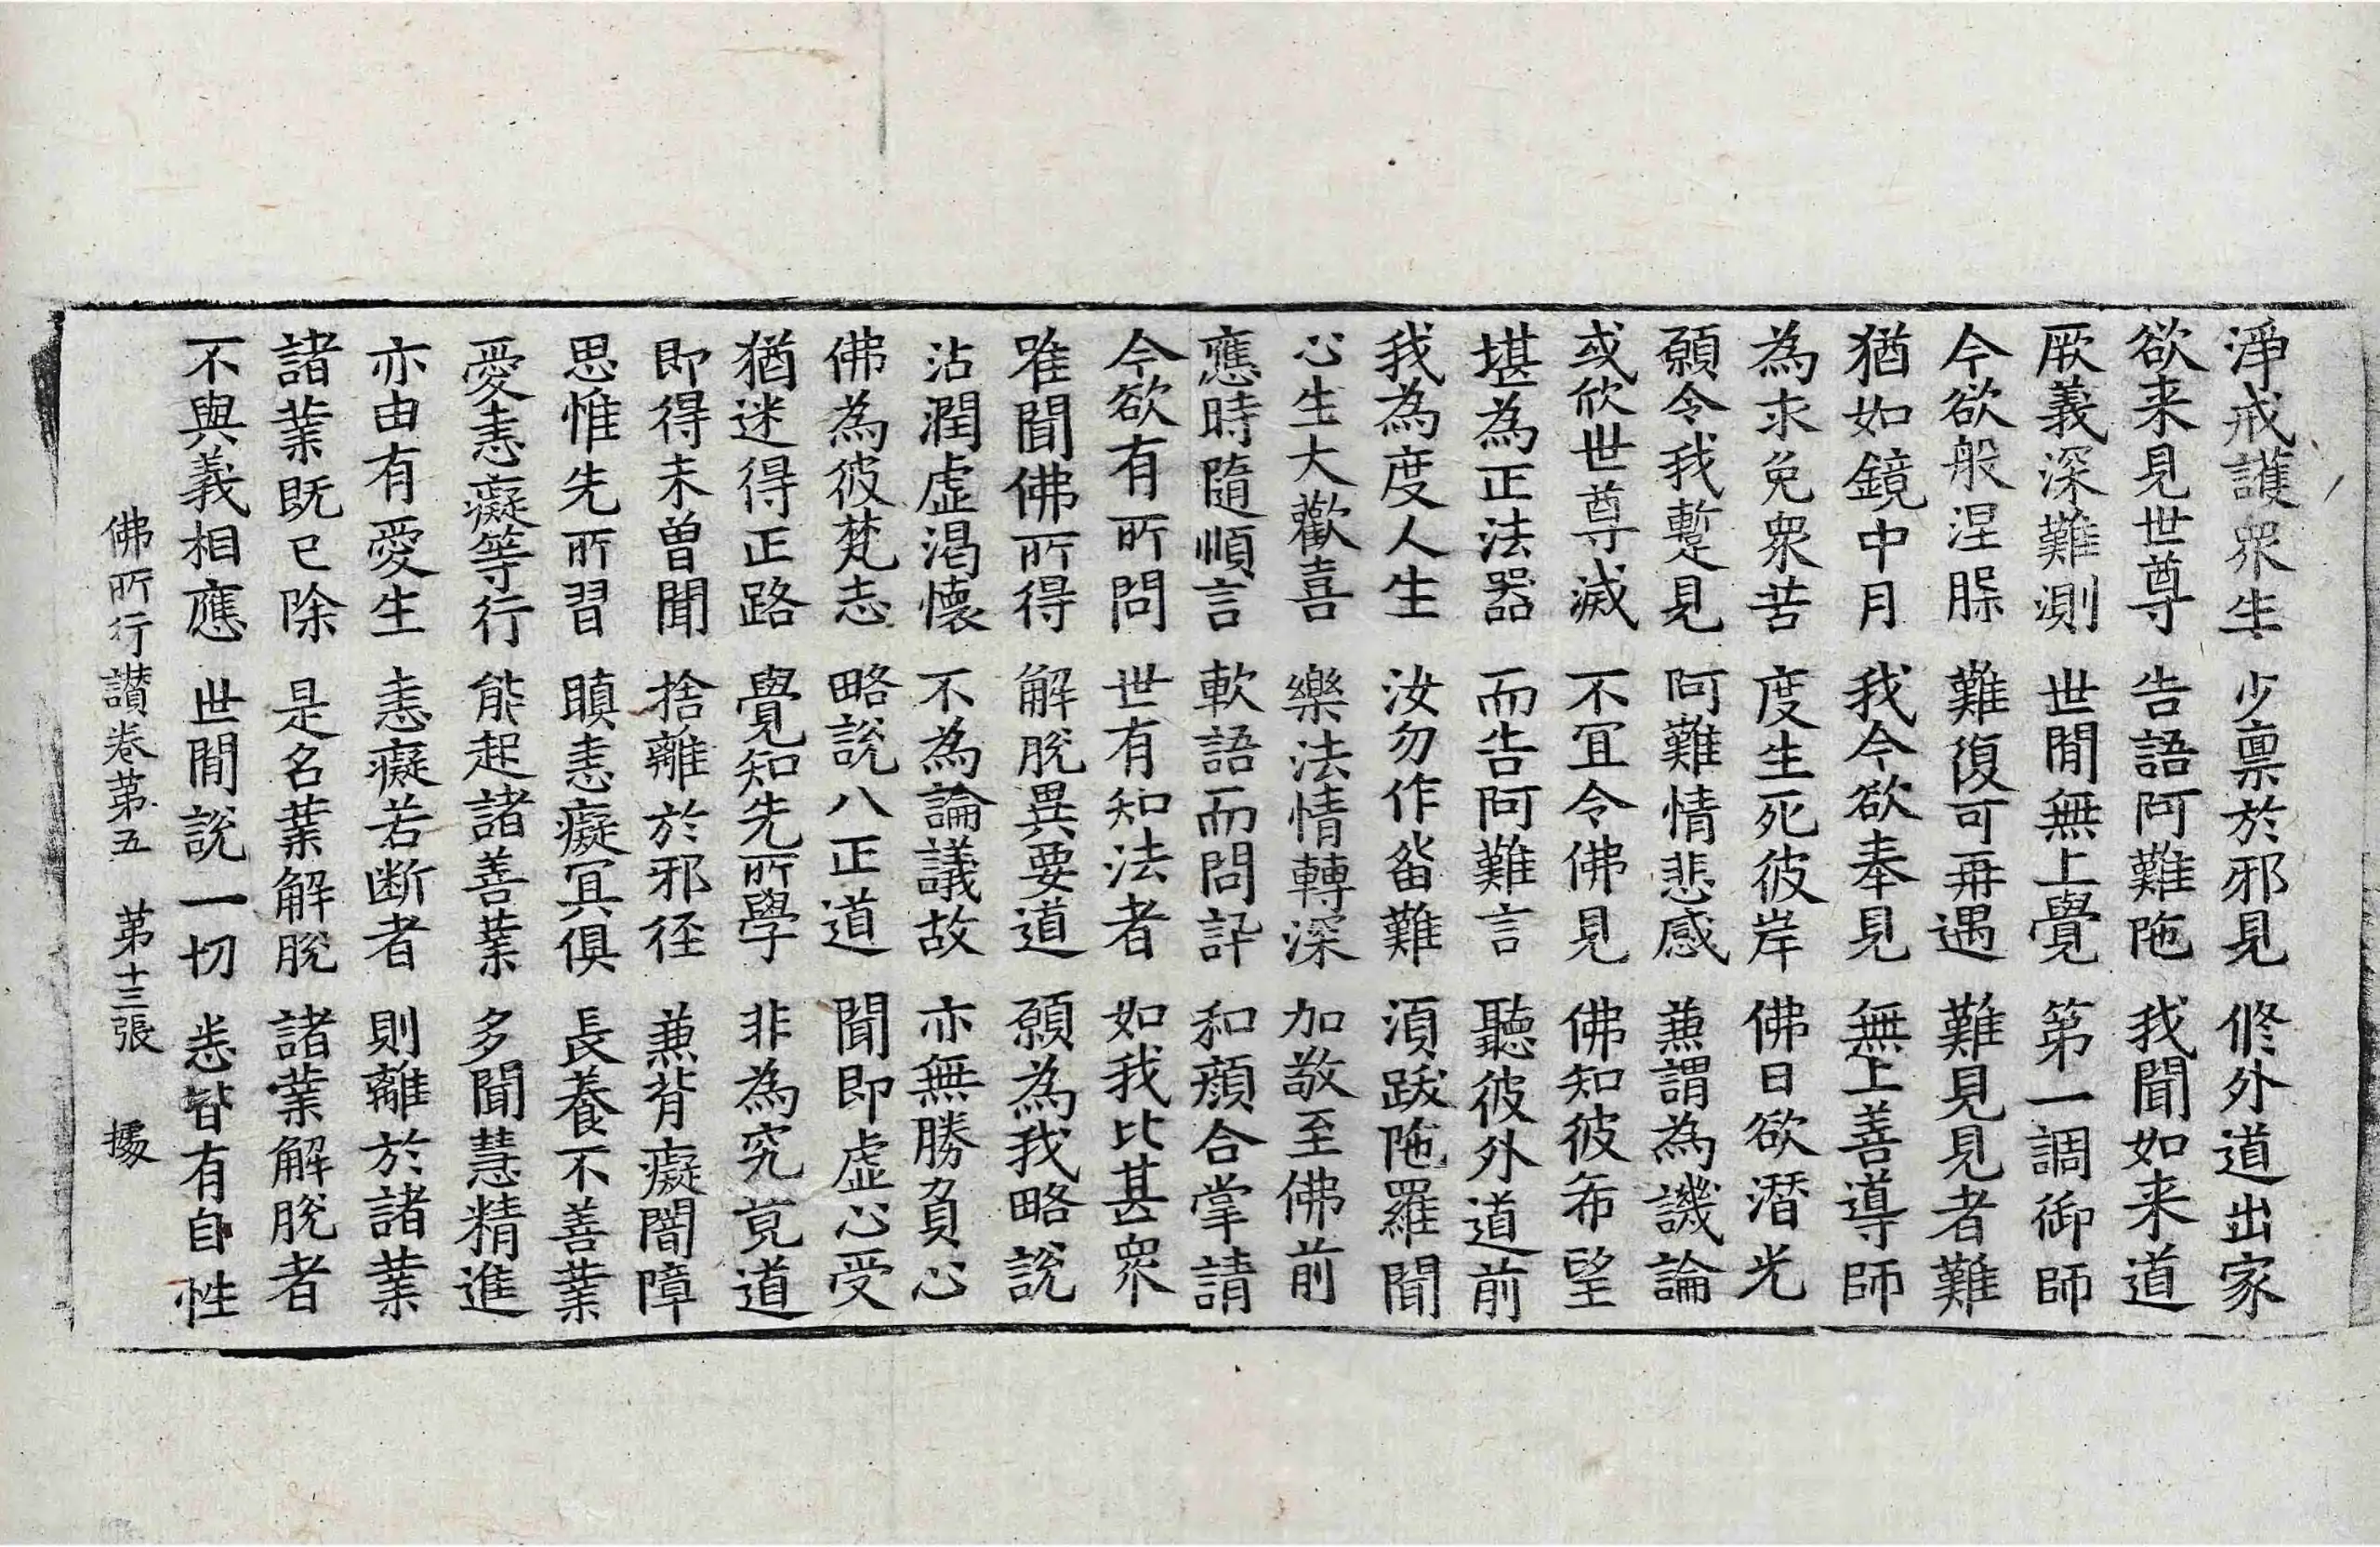 淨戒護衆生 少禀於邪見 修外道出家
欲来見世尊 告語阿難陁 我聞如来道
厥義深難測 世閒無上覺 第一調御師
今欲般涅脵 難復可再遇 難見見者難
猶如鏡中月 我今欲奉見 無上善導師
為求免衆苦 度生死彼岸 佛日欲潛光
願令我暫見 阿難情悲感 兼謂為譏論
或欣世尊滅 不冝令佛見 佛知彼希望
堪為正法器 而告阿難言 聽彼外道前
我為度人生 汝勿作留難 湏跋陁羅聞
心生大歡喜 樂法情轉深 加敬至佛前
應時隨順言 軟語而問訊 和顔合掌請
今欲有所問 世有知法者 如我比甚衆
唯聞佛所得 解脫異要道 願為我略說
沾潤虛渴懷 不為論議故 亦無勝負心
佛為彼梵志 略說八正道 聞即虛心受
猶迷得正路 覺知先所學 非為究竟道
即得未曾聞 捨離於邪径 兼背癡闇障
思惟先所習 瞋恚癡冥俱 長養不善業
愛恚癡等行 能起諸善業 多聞慧精進
亦由有愛生 恚癡若断者 則離於諸業
諸業既已除 是名業解脫 諸業解脫者
不與義相應 世閒說一切 悉皆有自性
佛所行讃卷第五 第十三張 㩀